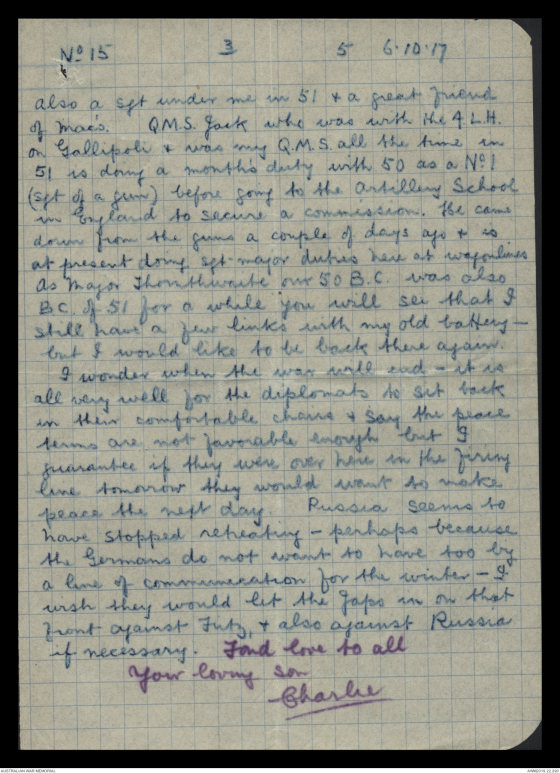 No 15 3 5 6.10.17
also a sgt under me in 51 & a great friend
of Mac's. Q.M.S. Jack who was with the 4 L.H.
on Gallipoli & was my Q.M.S. all the time in
51 is doing a month's duty with 50 as a No 1
(sgt of a gun) before going to the Artillery School
in England to secure a commission. He came
down from the guns a couple of days ago & is
at present doing sgt-major duties here at wagonlines
As Major Thornthwaite our 50 B.C. was also
B.C. of 51 for a while you will see that I
still have a few links with my old battery -
but I would like to be back there again.
I wonder when the war will end - it is
all very well for the diplomats to sit back
in their comfortable chairs & say the peace
terms are not favorable enough but I
guarantee if they were over here in the firing
line tomorrow they would want to make
peace the next day. Russia seems to
have stopped retreating - perhaps because
the Germans do not want to have too big
a line of communication for the winter - I
wish they would let the Japs in on that
front against Fritz, & also against Russia
if necessary. Fond love to all
Your loving son
Charlie
AUSTRALIAN WAR MEMORIAL